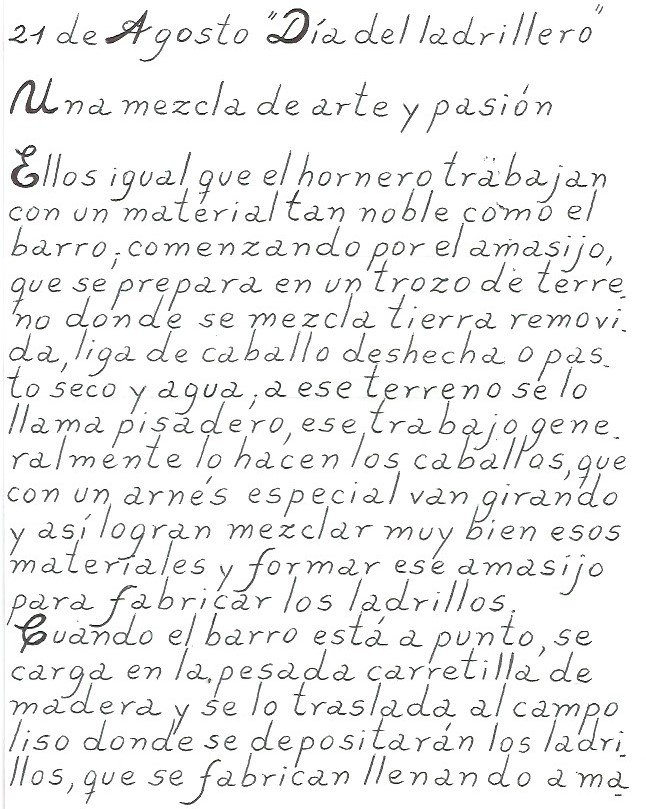 21 de Agosto "Día del ladrillero"
Una mezcla de arte y pasión
Ellos igual que el hornero trabajan
con un material tan noble como el
barro; comenzando por el amasijo,
que se prepara en un trozo de terre_
no donde se mezcla tierra removi_
da, liga de caballo deshecha o pas_
to seco y agua; a ese terreno se lo
llama pisadero, ese trabajo gene_
ralmente lo hacen los caballos, que
con un arnés especial van girando
y así logran mezclar muy bien esos
materiales y formar ese amasijo
para fabricar los ladrillos.
Cuando el barro está a punto, se
carga en la pesada carretilla de
madera y se lo traslada al campo
liso donde se depositarán los ladri_
llos, que se fabrican llenando a ma_